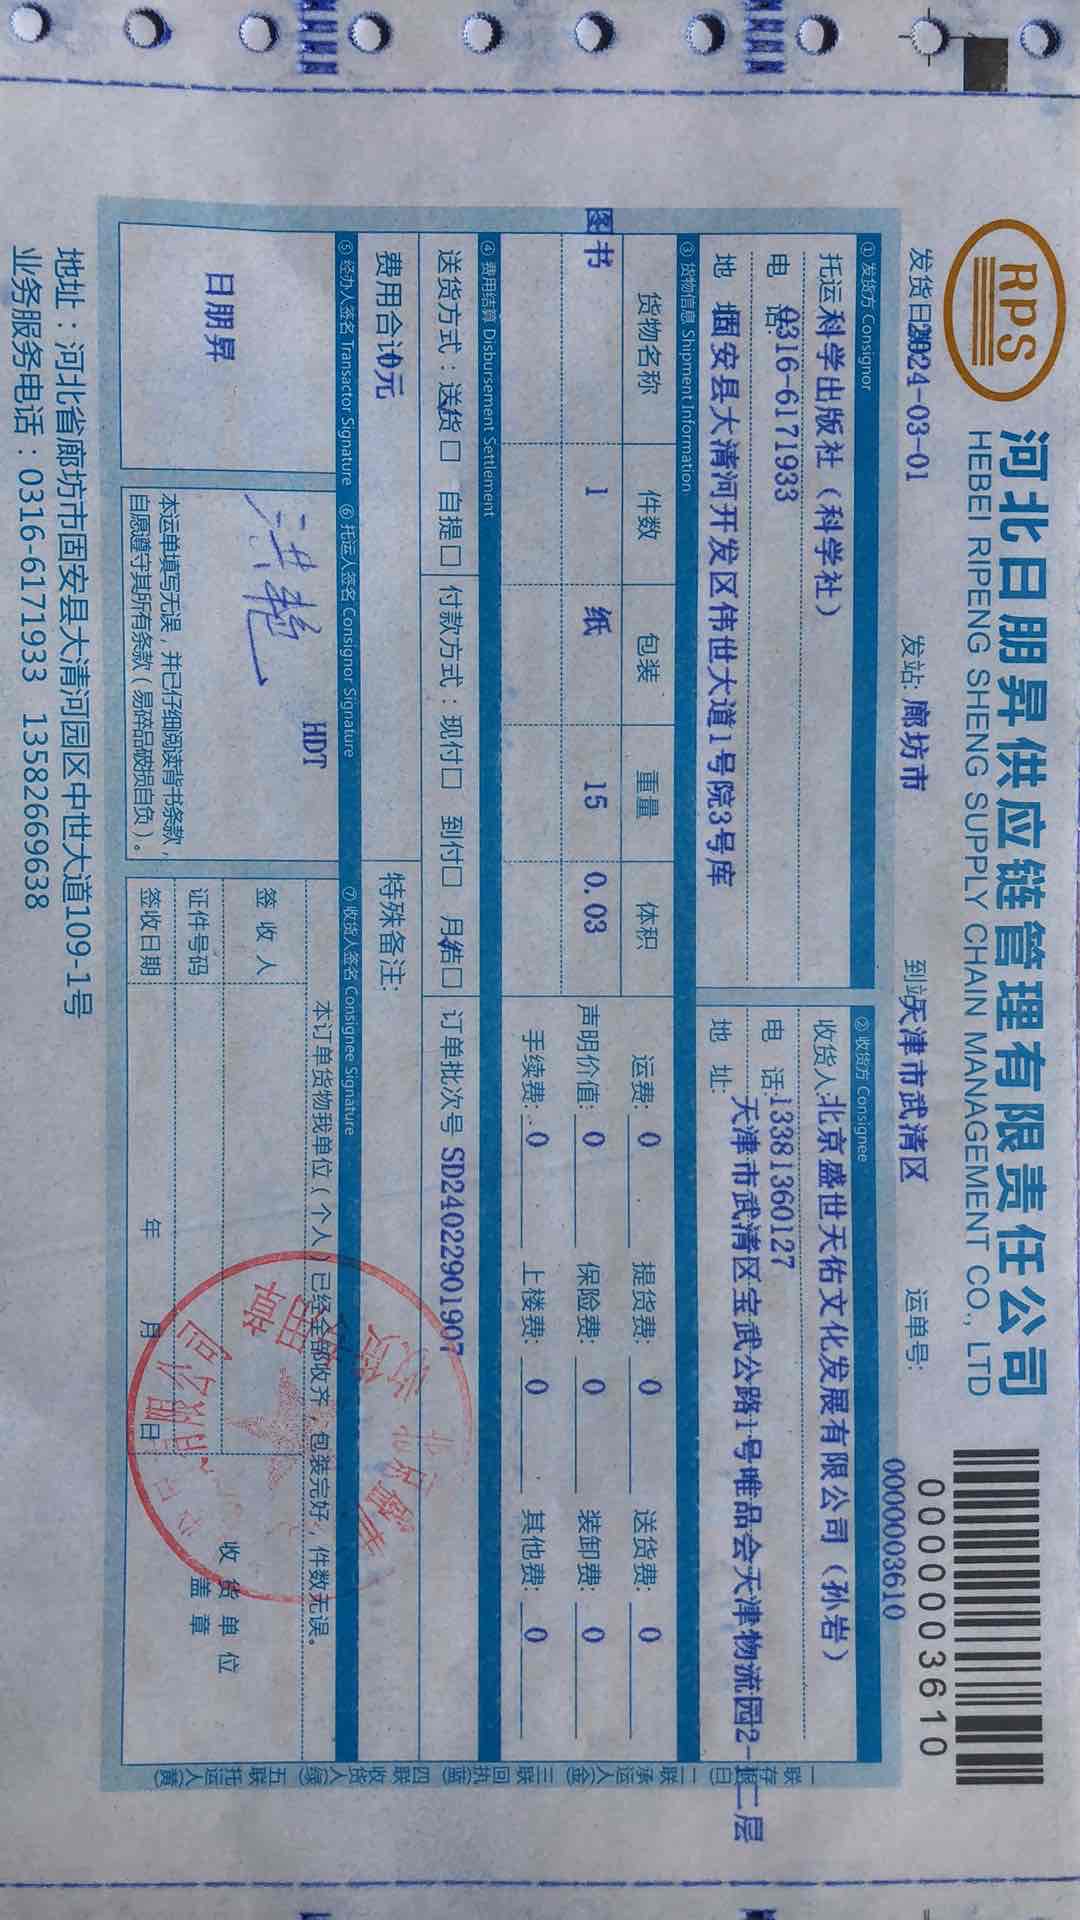 RPS
河北日朋昇供应链管理有限责任公司
HEBEI RIPENG SHENG SUPPLY CHAIN MANAGEMENT CO., LTD
0000003610
发货日期2024-03-01 发站: 廊坊市 到站天津市武清区 运单号: 0000003610
①发货方 Consignor
托运科学出版社（科学社）
电 话:0316-6171933
地 址固安县大清河开发区伟世大道1号院3号库
②收货方 Consignee
收货人:北京盛世天佑文化发展有限公司（孙岩）
电 话:13381360127
地 址: 天津市武清区宝武公路1号唯品会天津物流园2-1二层
③货物信息 Shipment Information
货物名称 件数 包装 重量 体积
图书 1 纸 15 0.03
运费: 0 提货费: 0 送货费: 0
声明价值: 0 保险费: 0 装卸费: 0
手续费: 0 上楼费: 0 其他费: 0
④费用结算 Disbursement Settlement
送货方式：送货□ 自提□ 付款方式：现付□ 到付□ 月结□ 订单批次号 SD24022901907
费用合计0元 特殊备注:
⑤经办人签名 Transactor Signature ⑥托运人签名 Consignor Signature ⑦收货人签名 Consignee Signature
日朋昇
HDT
本运单填写无误，并已仔细阅读背书条款，
自愿遵守其所有条款（易碎品破损自负）。
本订单货物我单位（个人）已经全部收齐，包装完好，件数无误。
签 收 人
证件号码
签收日期 年 月 日
收 货 单 位
盖 章
一联存根(白) 二联承运人(金) 三联回执(蓝) 四联收货人(绿) 五联托运人(黄)
地址：河北省廊坊市固安县大清河园区中世大道109-1号
业务服务电话：0316-6171933 13582669638